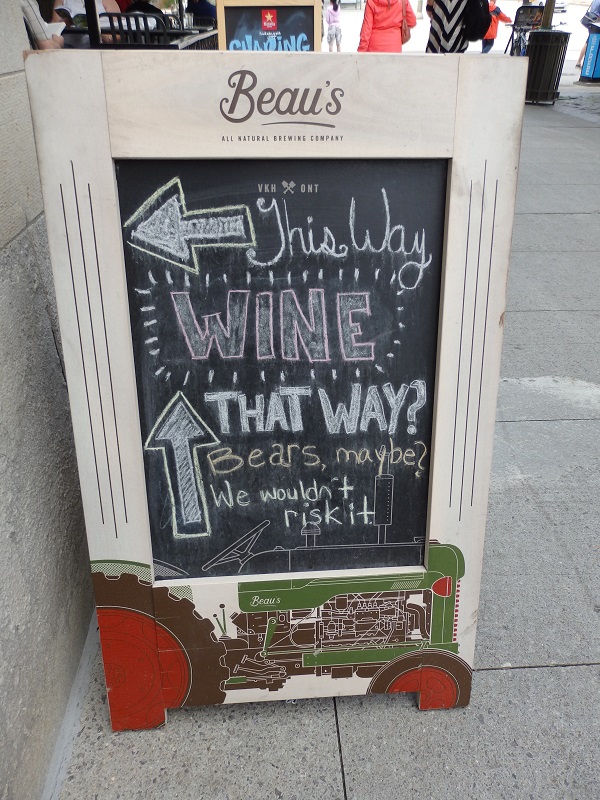 AMAZING
Beau's
ALL NATURAL BREWING COMPANY
VKH ONT
This Way
WINE
THAT WAY?
Bears, maybe?
We wouldn't
risk it
Beau's